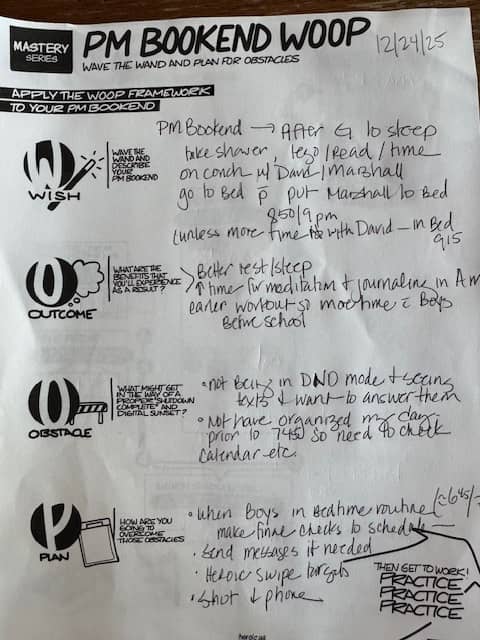 MASTERY
SERIES
PM BOOKEND WOOP
12/24/25
WAVE THE WAND AND PLAN FOR OBSTACLES
APPLY THE WOOP FRAMEWORK
TO YOUR PM BOOKEND
W
WISH
WAVE THE
WAND AND
DESCRIBE
YOUR
PM BOOKEND
PM Bookend → After G to sleep
take shower, lego/Read/time
on couch w/ David/Marshall
go to Bed p̄ put Marshall to Bed
850/9pm
(unless more time with David — in Bed
915
O
OUTCOME
WHAT ARE THE
BENEFITS THAT
YOU'LL EXPERIENCE
AS A RESULT?
Better rest/sleep
↑ time for meditation + journaling in Am
earlier workout so more time c̄ Boys
Before school
O
OBSTACLE
WHAT MIGHT GET
IN THE WAY OF A
PROPER "SHUTDOWN
COMPLETE" AND
DIGITAL SUNSET?
• not Being in DND mode + seeing
texts + want to answer them
• Not have organized my day
prior to 745 so need to check
calendar etc.
P
PLAN
HOW ARE YOU
GOING TO
OVERCOME
THOSE OBSTACLES
• when Boys in Bedtime routine (~645/
make final checks to schedule —
• Send messages if needed
• Heroic swipe targets
• Shut ↓ phone
THEN GET TO WORK!
PRACTICE
PRACTICE
PRACTICE